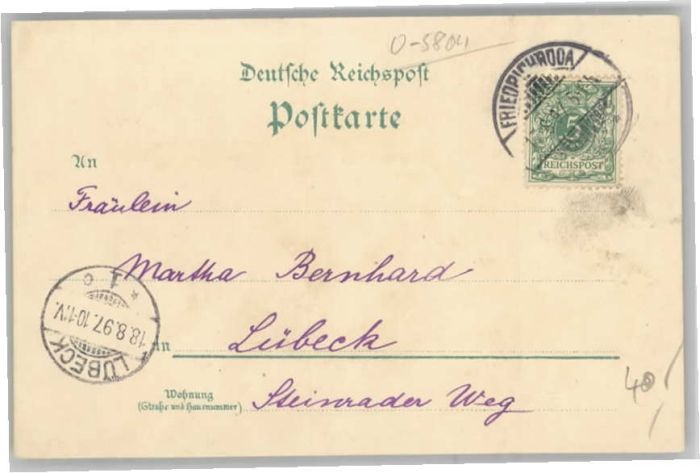 0-5804
Deutsche Reichspost
Postkarte
FRIEDRICHRODA
5
REICHSPOST
An
Fräulein
Martha Bernhard
in Lübeck
Wohnung
(Straße und Hausnummer)
Steinrader Weg
LÜBECK
18.8.97.10-11.V.
* 1 c
40